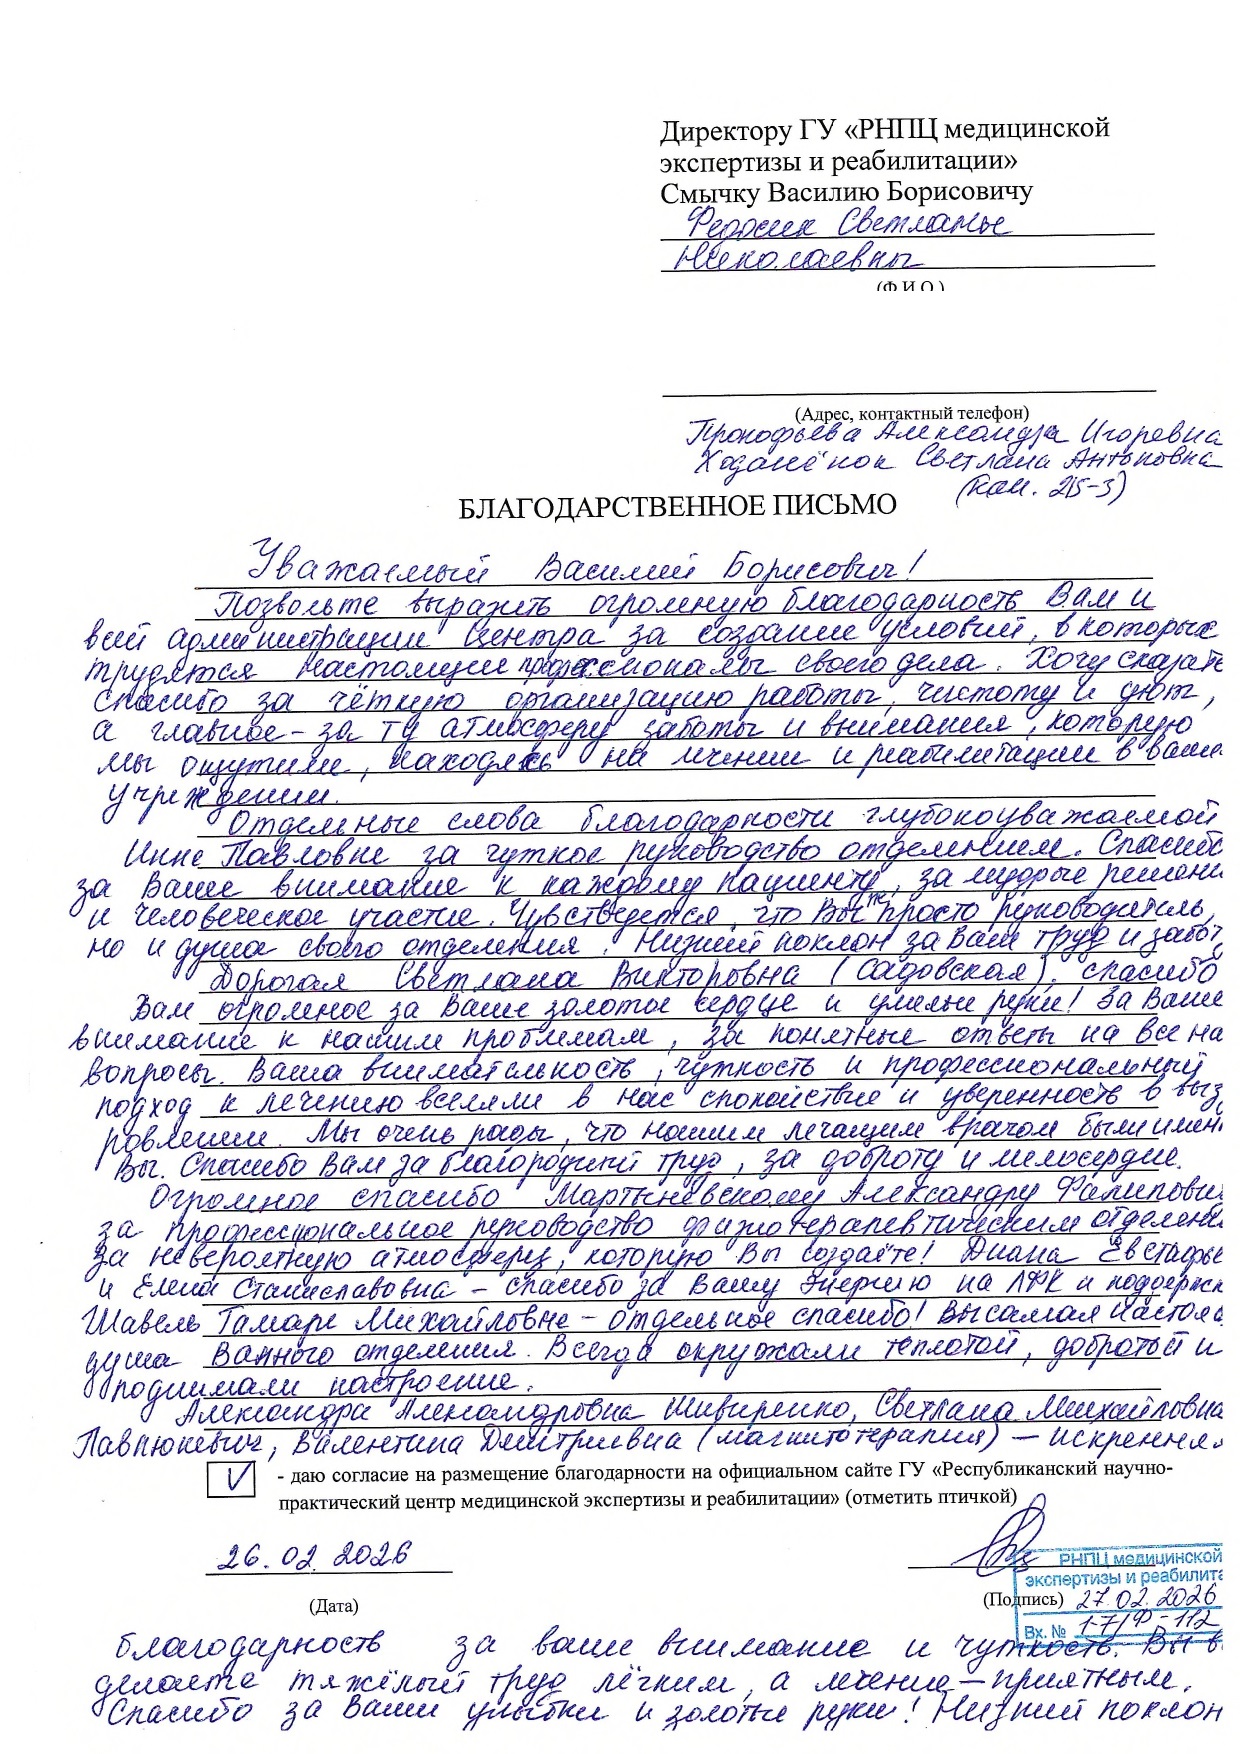 Директору ГУ «РНПЦ медицинской
экспертизы и реабилитации»
Смычку Василию Борисовичу
Федосик Светланы
Николаевны
(Ф.И.О.)
(Адрес, контактный телефон)
Прокофьева Александра Игоревна
Ходанёнок Светлана Антоновна
(пал. 215-3)
БЛАГОДАРСТВЕННОЕ ПИСЬМО
Уважаемый Василий Борисович!
Позвольте выразить огромную благодарность Вам и
всей администрации Центра за создание условий, в которых
трудятся настоящие профессионалы своего дела. Хочу сказать
спасибо за чёткую организацию работы, чистоту и уют,
а главное - за ту атмосферу заботы и внимания, которую
мы ощутили, находясь на лечении и реабилитации в ваше
учреждении.
Отдельные слова благодарности глубокоуважаемой
Инне Павловне за чуткое руководство отделением. Спасибо
за Ваше внимание к каждому пациенту, за мудрые решени
и человеческое участие. Чувствуется, что Вы не просто руководитель,
но и душа своего отделения. Низкий поклон за Ваш труд и забот
Дорогая Светлана Викторовна (Садовская), спасибо
Вам огромное за Ваше золотое сердце и умелые руки! За Ваше
внимание к нашим проблемам, за понятные ответы на все на
вопросы. Ваша внимательность, чуткость и профессиональный
подход к лечению вселяли в нас спокойствие и уверенность в выз
ровлении. Мы очень рады, что нашим лечащим врачом были имен
Вы. Спасибо Вам за благородный труд, за доброту и милосердие.
Огромное спасибо Мартыневскому Александру Филипови
за профессиональное руководство физиотерапевтическим отделени
за невероятную атмосферу, которую Вы создаёте! Диана Евстафье
и Елена Станиславовна - спасибо за Вашу энергию на ЛФК и поддержк
Шавель Тамаре Михайловне - отдельное спасибо! Вы самая настоя
душа Ванного отделения. Всегда окружали теплотой, добротой и
поднимали настроение.
Александра Александровна Шивиренко, Светлана Михайловна
Павлюкевич, Валентина Дмитриевна (магнитотерапия) — искрення
V - даю согласие на размещение благодарности на официальном сайте ГУ «Республиканский научно-
практический центр медицинской экспертизы и реабилитации» (отметить птичкой)
26.02.2026
РНПЦ медицинской
экспертизы и реабилита
(Дата) (Подпись) 27.02.2026
Вх. № 1-7/Ф-112
благодарность за ваше внимание и чуткость. Вы в
делаете тяжёлый труд лёгким, а лечение — приятным.
Спасибо за Ваши улыбки и золотые руки! Низкий поклон